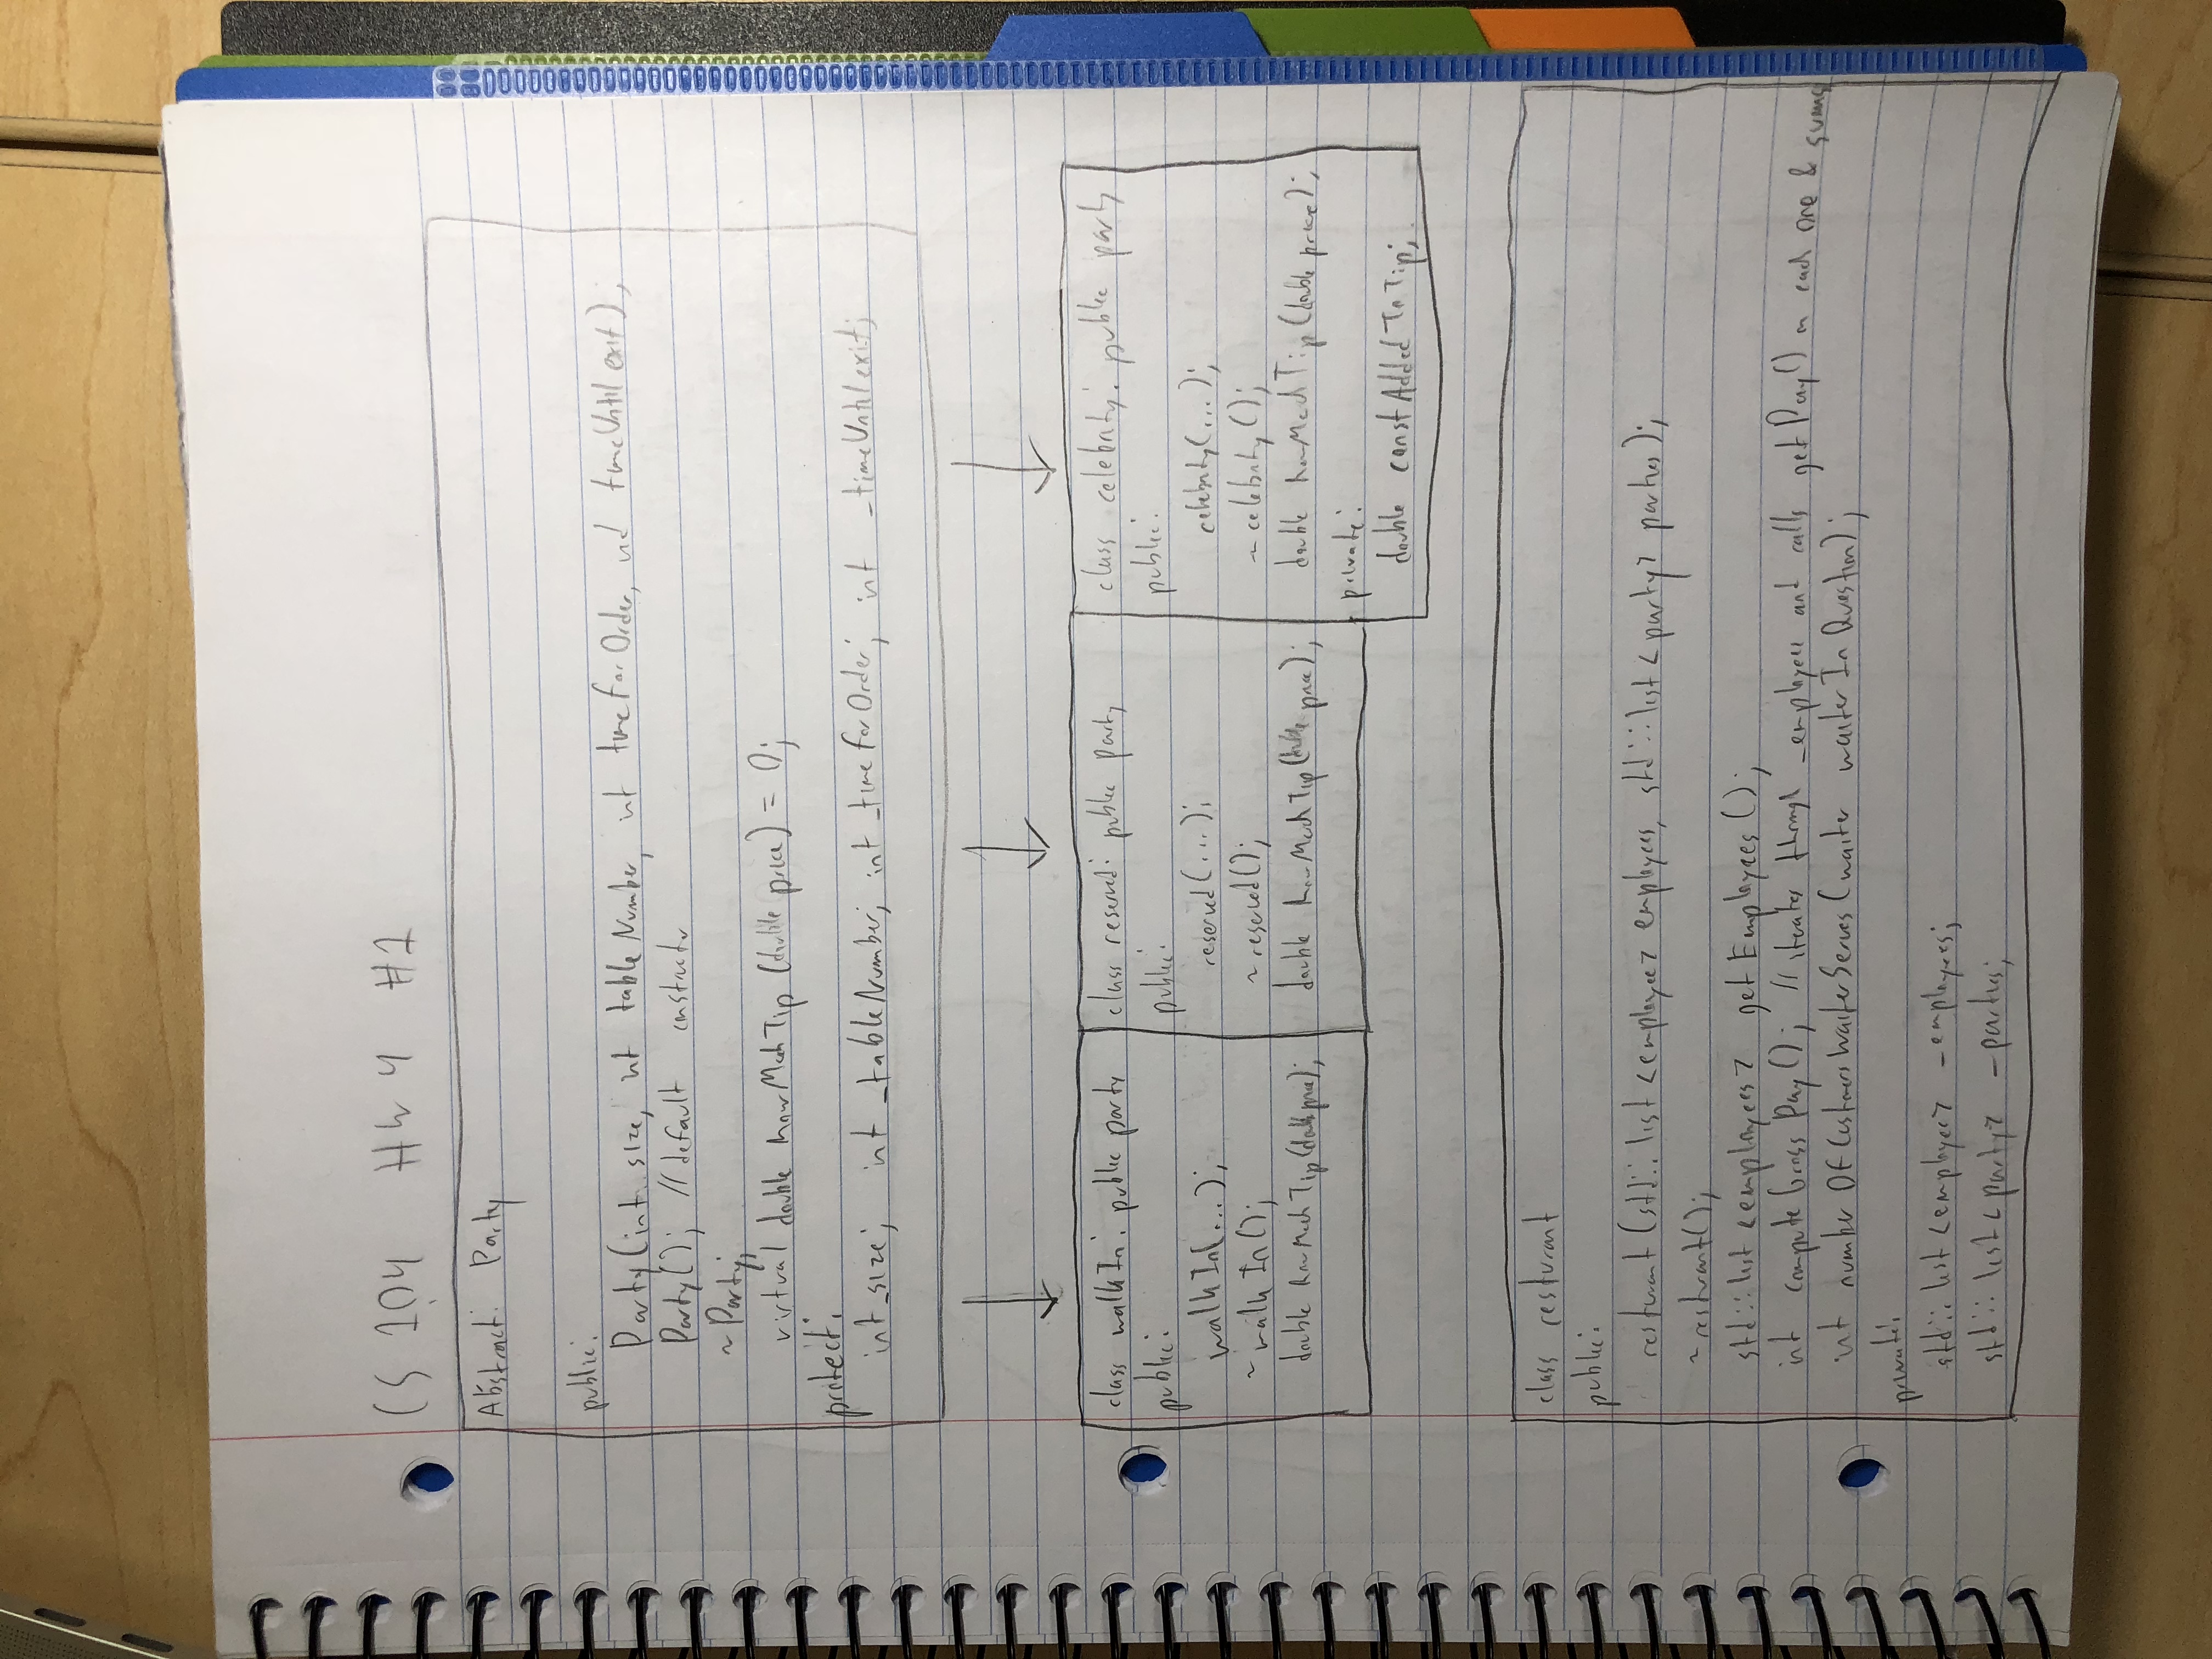 CS 104 HW 4 #1
Abstract: Party
public:
Party(int size, int tableNumber, int timeForOrder, int timeUntilexit);
Party(); //default constructor
~Party;
virtual double howMuchTip (double price) = 0;
protect:
int _size; int _tableNumber; int _timeForOrder; int _timeUntilexit;
class walkIn: public party
public:
walkIn(...);
~walkIn();
double howMuchTip(double price);
class reserved: public party
public:
reserved(...);
~reserved();
double howMuchTip(double price);
class celebrity: public party
public:
celebrity(...);
~celebrity();
double howMuchTip(double price);
private:
double constAddedToTip;
class resturant
public:
resturant (std::list <employee> employees, std::list <party> parties);
~resturant();
std::list <employees> getEmployees();
int computeGrossPay(); //iterates through _employees and calls getPay() on each one & sums
int numberOfCustomersWaiterServes(waiter waiterInQuestion);
private:
std::list <employee> _employees;
std::list <party> _parties;